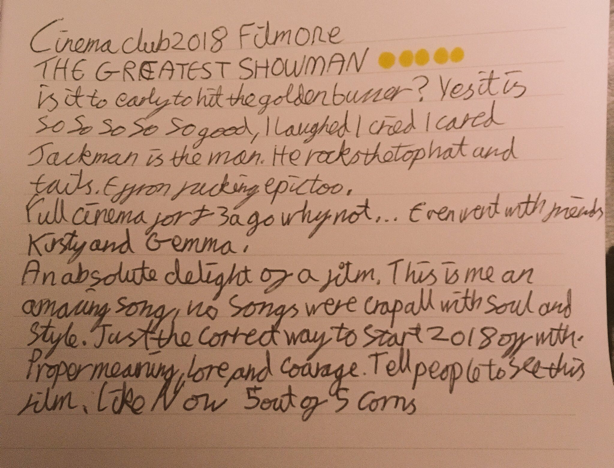 Cinema club 2018 Filmore
THE GREATEST SHOWMAN
is it to early to hit the golden buzzer? Yes it is
so so so so so good, I laughed I cried I cared
Jackman is the man. He rocks the top hat and
tails. Effron fucking epic too.
Full cinema for £3 a go why not... Even went with friends
Kirsty and Gemma.
An absolute delight of a film. This is me an
amazing song, no songs were crap all with soul and
style. Just the correct way to start 2018 off with.
Proper meaning, love and courage. Tell people to see this
film. Like Now 5 out of 5 corns